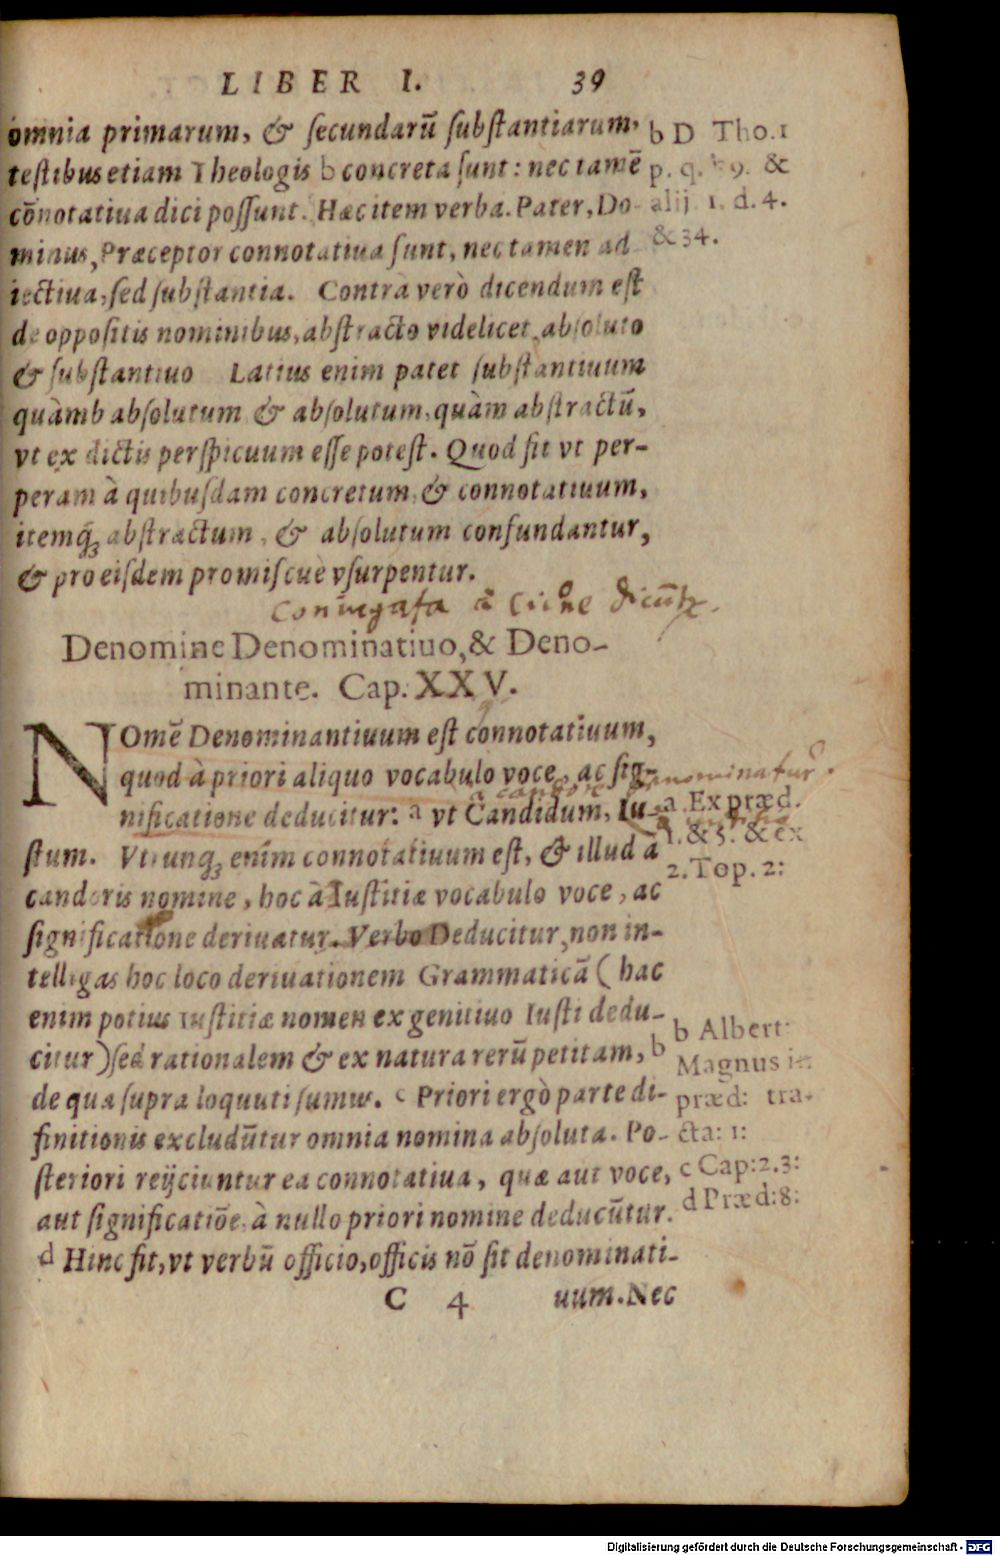 LIBER I. 39
omnia primarum, & secundarũ substantiarum,
testibus etiam Theologis b concreta sunt: nec tamẽ
cõnotatiua dici possunt. Hæc item verba. Pater, Do-
minus, Præceptor connotatiua sunt, nec tamen ad
iectiua, sed substantia. Contrà verò dicendum est
de oppositis nominibus, abstracto videlicet, absoluto
& substantiuo Latius enim patet substantiuum
quàmb absolutum & absolutum, quàm abstractũ,
vt ex dictis perspicuum esse potest. Quod fit vt per-
peram à quibusdam concretum, & connotatiuum,
itemq́; abstractum, & absolutum confundantur,
& pro eisdem promiscuè vsurpentur.
b D Tho. 1
p. q. 9. &
alij 1. d. 4.
& 34.
Coniugata à
Denomine Denominatiuo, & Deno-
minante. Cap. XXV.
NOmẽ Denominantiuum est connotatiuum,
quod à priori aliquo vocabulo voce, ac sig-
nificatione deducitur: a vt Candidum, Iu-
stum. Vtrunq; enim connotatiuum est, & illud à
candoris nomine, hoc à Iustitiæ vocabulo voce, ac
significatione deriuatur. Verbo Deducitur, non in-
telligas hoc loco deriuationem Grammaticã (hac
enim potius iustitiæ nomen ex genitiuo Iusti dedu-
citur) sed rationalem & ex natura rerũ petitam, b
de qua supra loquuti sumus. c Priori ergò parte di-
finitionis excludũtur omnia nomina absoluta. Po-
steriori reijciuntur ea connotatiua, quæ aut voce,
aut significatiõe, à nullo priori nomine deducũtur.
d Hinc fit, vt verbũ officio, officis nõ sit denominati-
a candore
denominatur
a. Ex præd.
1. & 5. & ex
2. Top. 2:
b Albert:
Magnus in
præd: tra-
cta: 1:
c Cap: 2. 3:
d Præd: 8:
C 4 uum. Nec
Digitalisierung gefördert durch die Deutsche Forschungsgemeinschaft - DFG